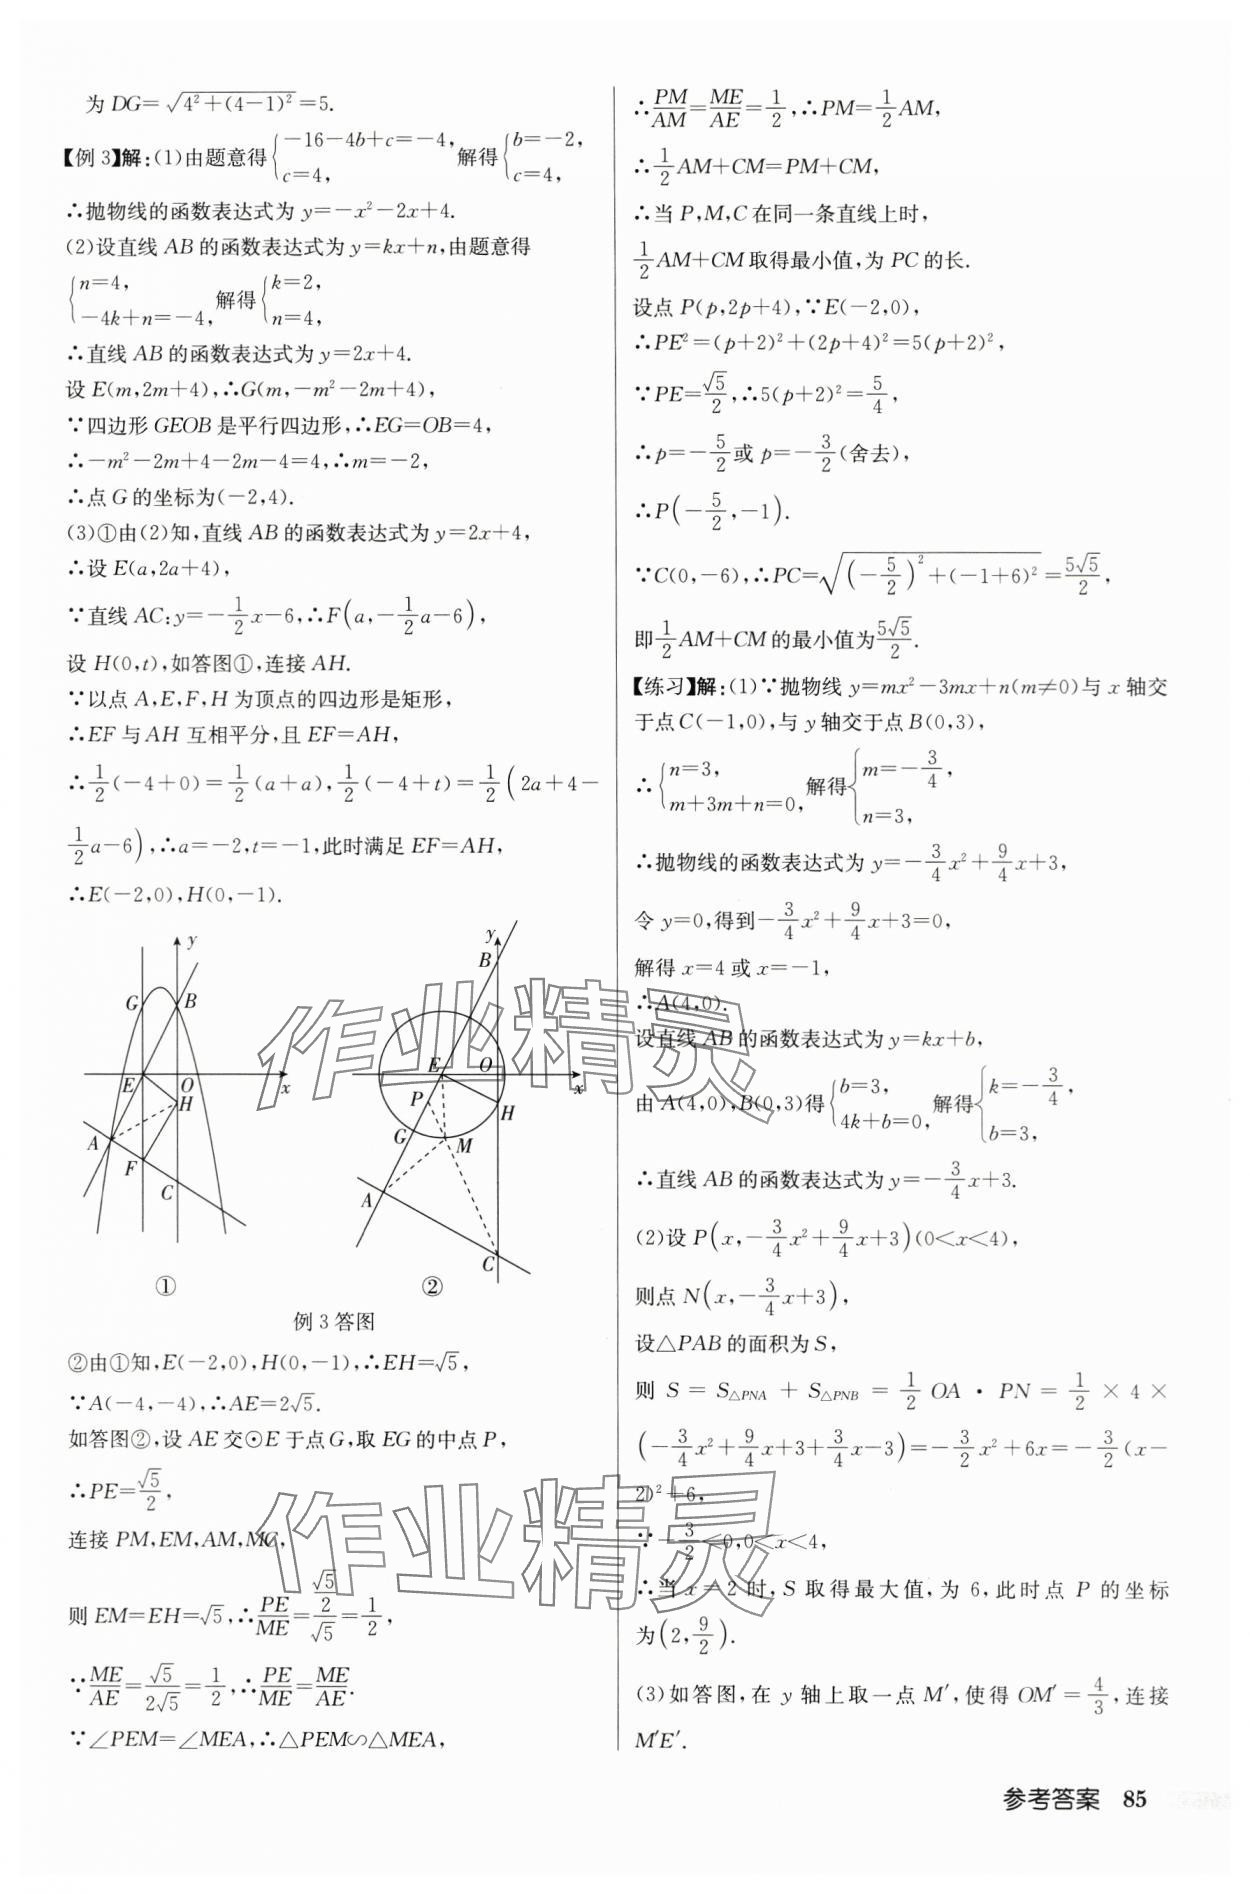 为 DG=√(4²+(4-1)²)=5.
【例 3】解:(1)由题意得{-16-4b+c=-4, c=4, 解得{b=-2, c=4,
∴抛物线的函数表达式为 y=-x²-2x+4.
(2)设直线 AB 的函数表达式为 y=kx+n,由题意得
{n=4, -4k+n=-4, 解得{k=2, n=4,
∴直线 AB 的函数表达式为 y=2x+4.
设 E(m,2m+4),∴G(m,-m²-2m+4),
∵四边形 GEOB 是平行四边形,∴EG=OB=4,
∴-m²-2m+4-2m-4=4,∴m=-2,
∴点 G 的坐标为(-2,4).
(3)①由(2)知,直线 AB 的函数表达式为 y=2x+4,
∴设 E(a,2a+4),
∵直线 AC:y=-1/2x-6,∴F(a,-1/2a-6),
设 H(0,t),如答图①,连接 AH.
∵以点 A,E,F,H 为顶点的四边形是矩形,
∴EF 与 AH 互相平分,且 EF=AH,
∴1/2(-4+0)=1/2(a+a),1/2(-4+t)=1/2(2a+4-
1/2a-6),∴a=-2,t=-1,此时满足 EF=AH,
∴E(-2,0),H(0,-1).
y
G
B
E
O
x
H
A
F
C
①
y
B
E
O
x
P
H
G
M
A
C
②
例 3 答图
②由①知,E(-2,0),H(0,-1),∴EH=√5,
∵A(-4,-4),∴AE=2√5.
如答图②,设 AE 交⊙E 于点 G,取 EG 的中点 P,
∴PE=√5/2,
连接 PM,EM,AM,MC,
则 EM=EH=√5,∴PE/ME=(√5/2)/√5=1/2,
∵ME/AE=√5/(2√5)=1/2,∴PE/ME=ME/AE.
∵∠PEM=∠MEA,∴△PEM∽△MEA,
∴PM/AM=ME/AE=1/2,∴PM=1/2AM,
∴1/2AM+CM=PM+CM,
∴当 P,M,C 在同一条直线上时,
1/2AM+CM取得最小值,为 PC 的长.
设点 P(p,2p+4),∵E(-2,0),
∴PE²=(p+2)²+(2p+4)²=5(p+2)²,
∵PE=√5/2,∴5(p+2)²=5/4,
∴p=-5/2或 p=-3/2(舍去),
∴P(-5/2,-1).
∵C(0,-6),∴PC=√((-5/2)²+(-1+6)²)=5√5/2,
即1/2AM+CM的最小值为5√5/2.
【练习】解:(1)∵抛物线 y=mx²-3mx+n(m≠0)与 x 轴交
于点C(-1,0),与 y 轴交于点B(0,3),
∴{n=3, m+3m+n=0, 解得{m=-3/4, n=3,
∴抛物线的函数表达式为 y=-3/4x²+9/4x+3,
令 y=0,得到-3/4x²+9/4x+3=0,
解得 x=4 或 x=-1,
∴A(4,0).
设直线 AB 的函数表达式为 y=kx+b,
由A(4,0),B(0,3)得{b=3, 4k+b=0, 解得{k=-3/4, b=3,
∴直线 AB 的函数表达式为 y=-3/4x+3.
(2)设 P(x,-3/4x²+9/4x+3)(0<x<4),
则点 N(x,-3/4x+3),
设△PAB 的面积为 S,
则 S = S△PNA + S△PNB = 1/2 OA · PN = 1/2 × 4 ×
(-3/4x²+9/4x+3+3/4x-3)=-3/2x²+6x=-3/2(x-
2)²+6,
∵-3/2<0,0<x<4,
∴当 x=2 时,S 取得最大值,为 6,此时点 P 的坐标
为(2,9/2).
(3)如答图,在 y 轴上取一点 M′,使得 OM′=4/3,连接
M′E′.
作业精灵
作业精灵
参考答案 85